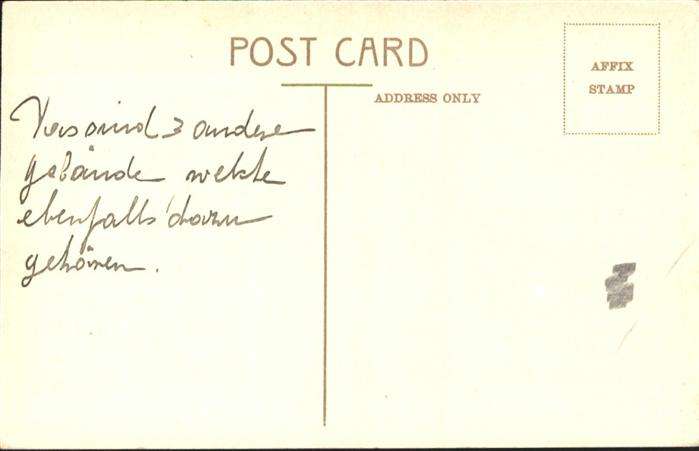 POST CARD
ADDRESS ONLY
AFFIX
STAMP
sind 3 andere
gebäude welche
ebenfalls dazu
gehören.